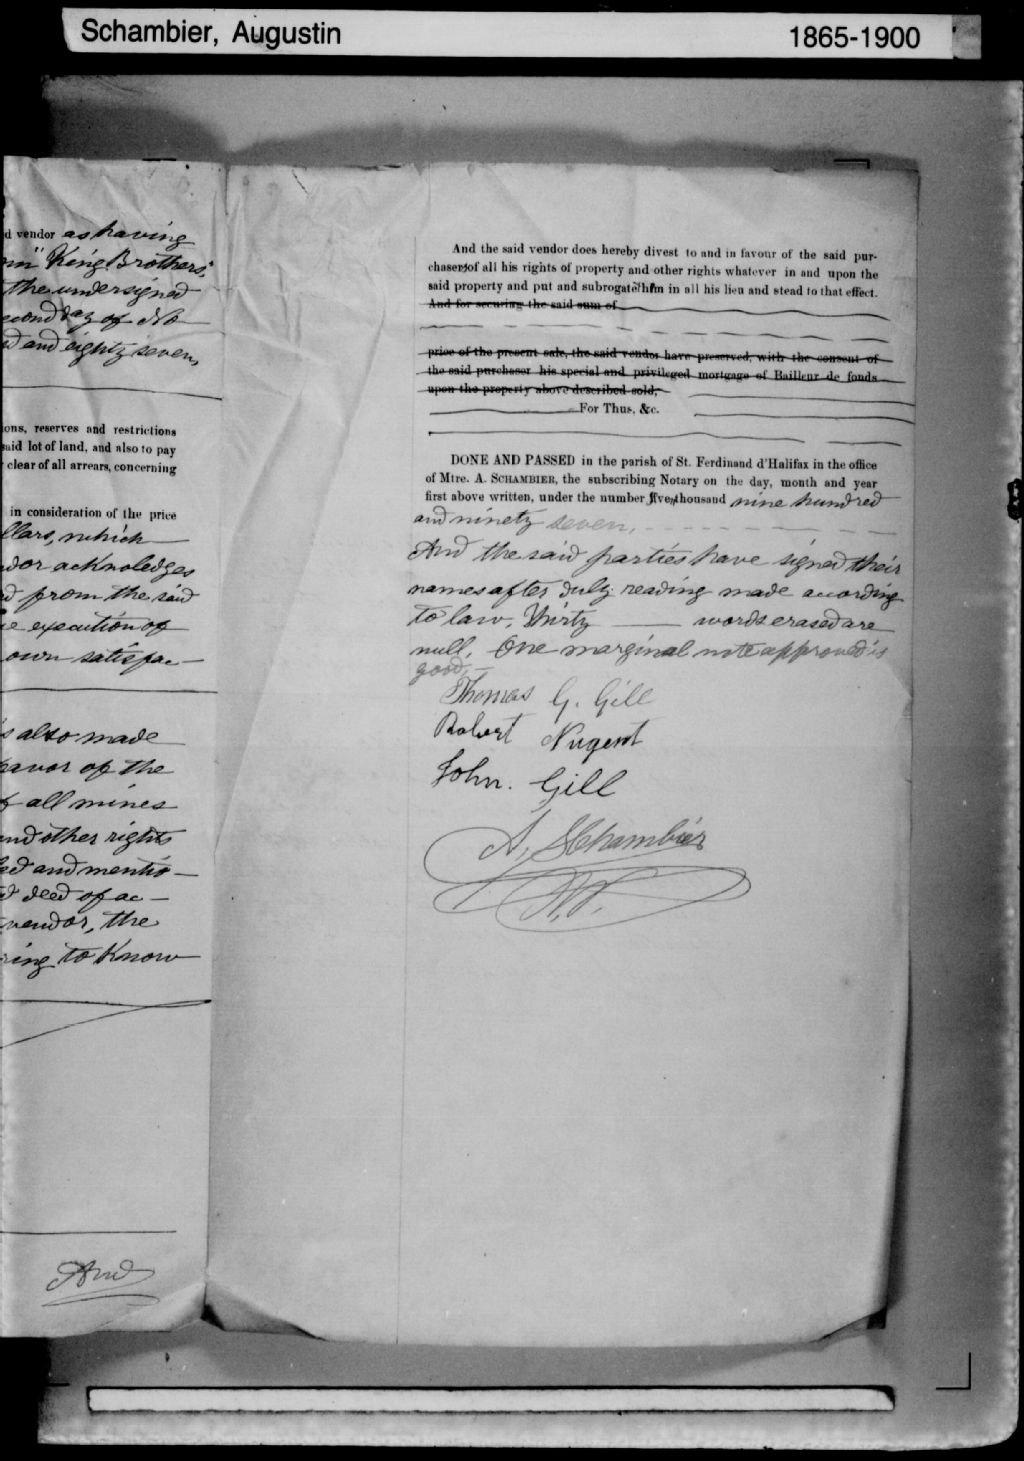 Schambier, Augustin 1865-1900
d vendor as having
"King Brothers,"
the undersigned
econd day of No
d and eighty seven,
ions, reserves and restrictions
said lot of land, and also to pay
clear of all arrears, concerning
in consideration of the price
llars, which
dor acknoledges
d from the said
e execution of
own satisfac-
s also made
favor of the
f all mines
and other rights
ed and mentio-
d deed of ac-
vendor, the
ring to Know
And
And the said vendor does hereby divest to and in favour of the said pur-
chaser of all his rights of property and other rights whatever in and upon the
said property and put and subrogate him in all his lieu and stead to that effect.
And for securing the said sum of
price of the present sale, the said vendor have preserved, with the consent of
the said purchaser his special and privileged mortgage of Bailleur de fonds
upon the property above described sold,
For Thus, &c.
DONE AND PASSED in the parish of St. Ferdinand d'Halifax in the office
of Mtre. A. SCHAMBIER, the subscribing Notary on the day, month and year
first above written, under the number five thousand nine hundred
and ninety seven,
And the said parties have signed their
names after duly reading made acording
to law. Thirty words erased are
null. One marginal note approved is
good.
Thomas G. Gill
Robert Nugent
John. Gill
A. Schambier
N.P.